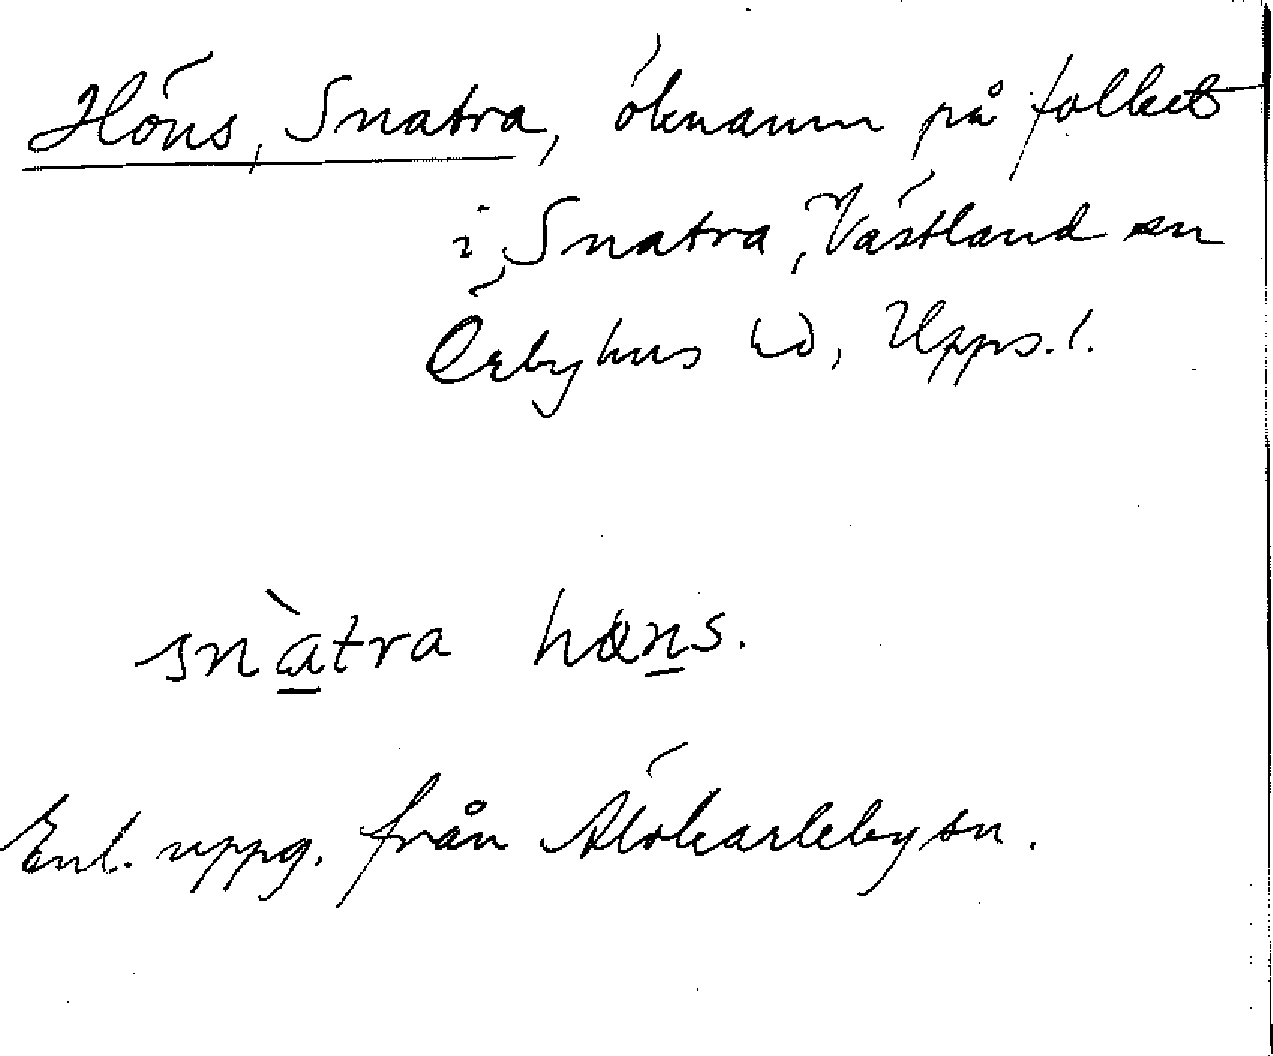 Höns, Snatra, öknamn på folket
i Snatra, Västland sn
Örbyhus hd, Upps. l.
snàtra hœns.
Enl. uppg. från Älvkarleby sn.